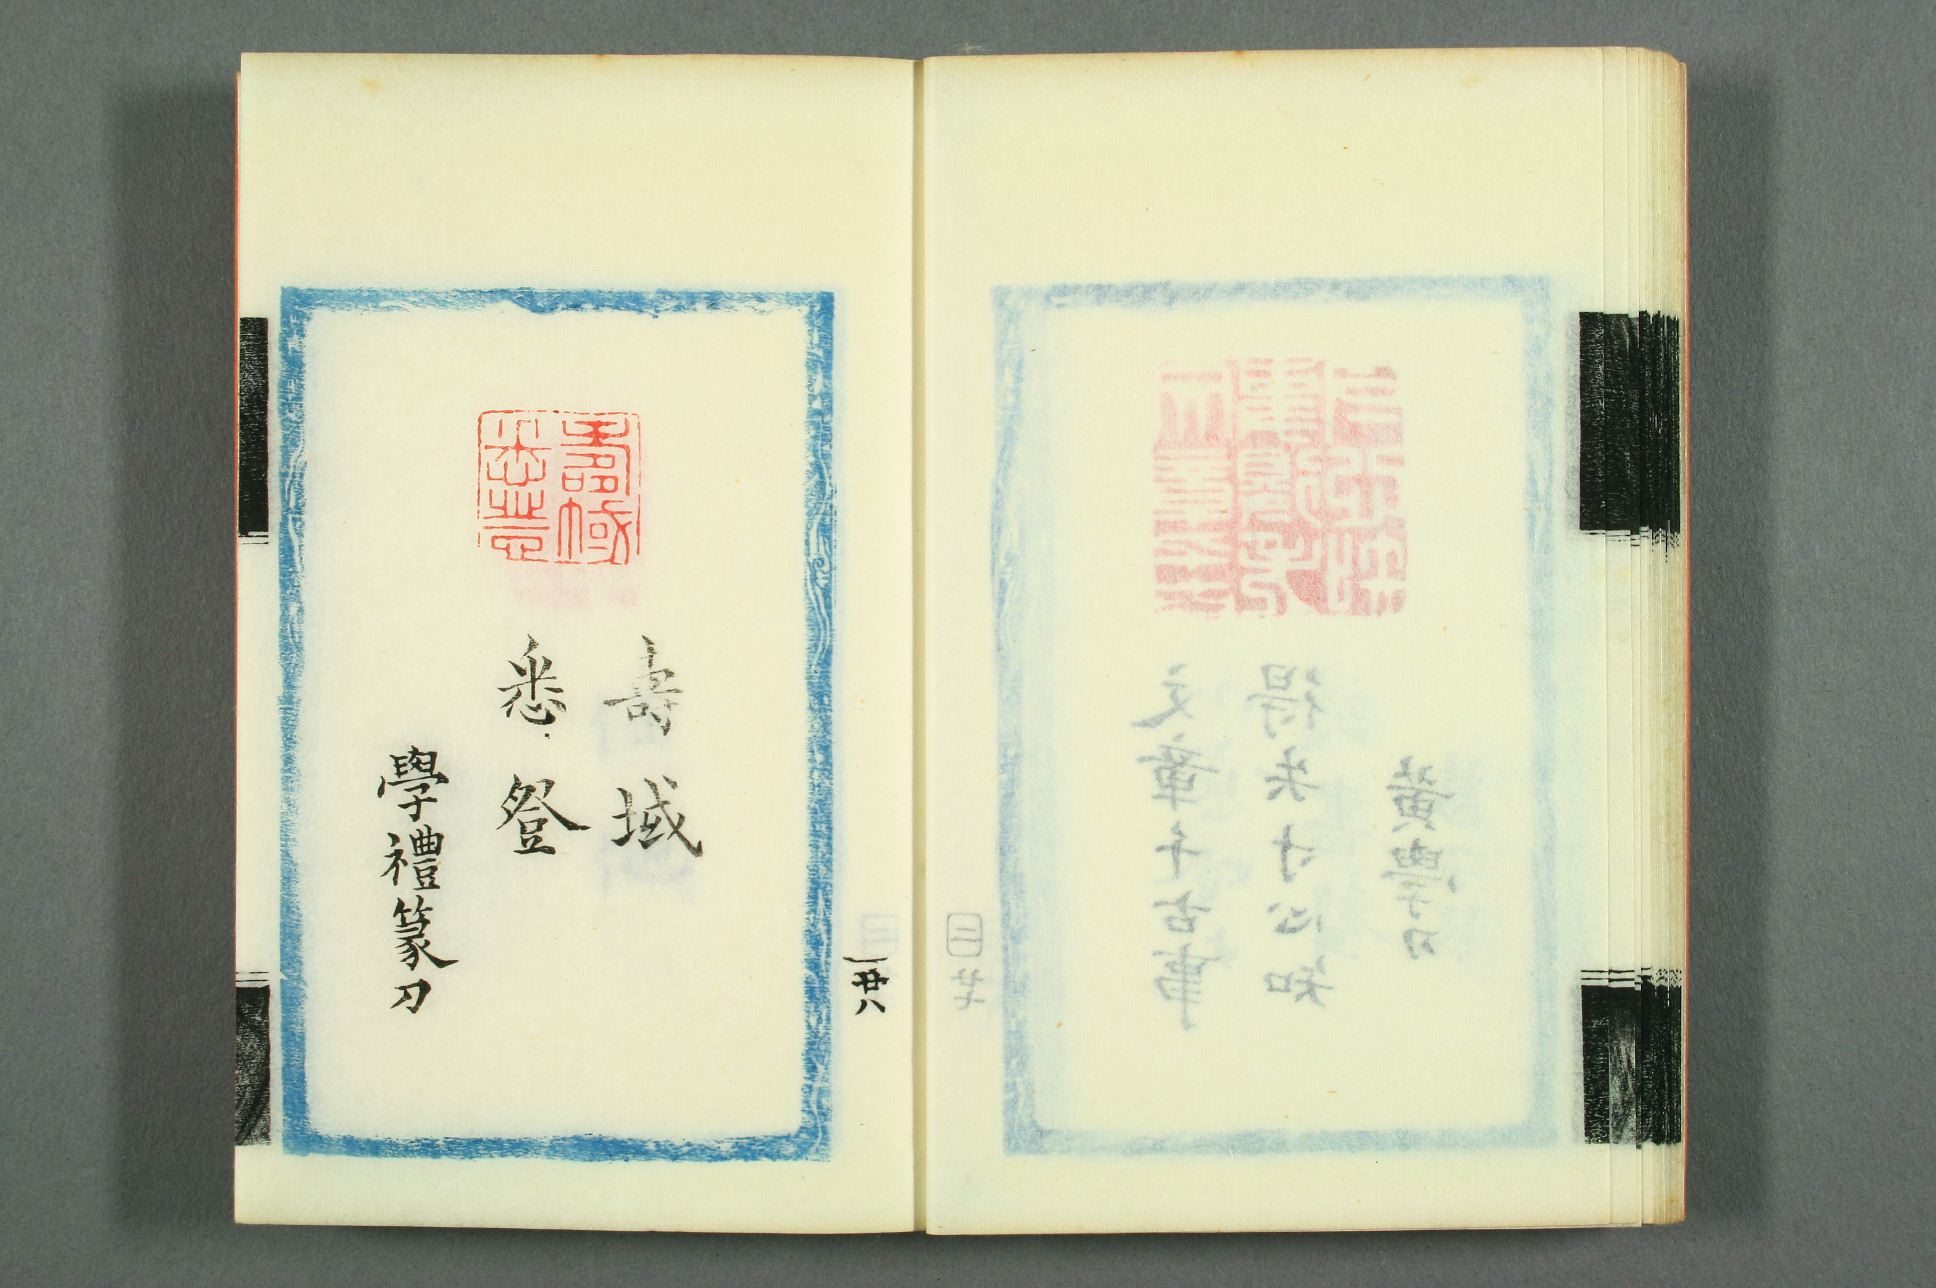 文章千古事
得失寸心知
黃學刀
三
廿七
壽域
悉登
壽域
悉登
學禮篆刀
廿八